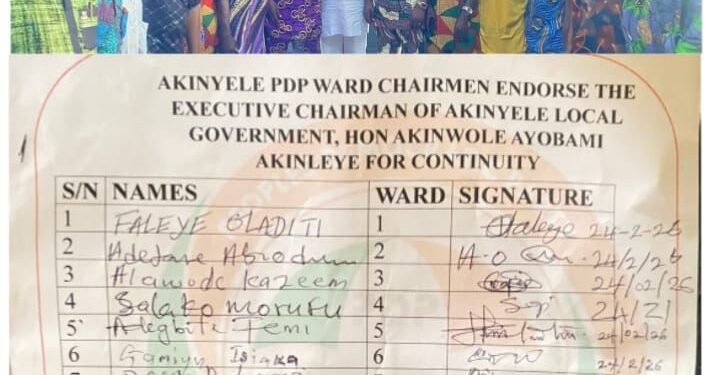 AKINYELE PDP WARD CHAIRMEN ENDORSE THE
EXECUTIVE CHAIRMAN OF AKINYELE LOCAL
GOVERNMENT, HON AKINWOLE AYOBAMI
AKINLEYE FOR CONTINUITY
1
S/N NAMES WARD SIGNATURE
1 FALEYE OLADITI 1 Faleye 24-2-26
2 Adejare Abiodun 2 A-O 24/2/26
3 Alawode Kazeem 3 24/02/26
4 Salako Morufu 4 24/2/
5 Alegbite Femi 5 24/02/26
6 Ganiyu Isiaka 6 24/2/26